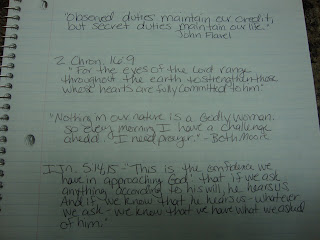 "Observed duties maintain our credit,
but secret duties maintain our life."
John Flavel
2 Chron. 16:9
"For the eyes of the Lord range
throughout the earth to strengthen those
whose hearts are fully committed to him."
"Nothing in our nature is a Godly woman.
so every morning I have a challenge
ahead. I need prayer." - Beth Moore
I Jn. 5:14,15 - "This is the confidence we
have in approaching God: that if we ask
anything according to his will, he hears us.
And if we know that he hears us - whatever
we ask - we know that we have what we asked
of him."